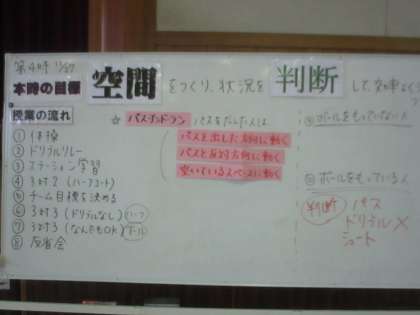 第4時 11/27
本時の目標 空間をつくり、状況を判断して、効率よく
授業の流れ
① 体操
② ドリブルリレー
③ ステーション学習
④ 3対2 (ハーフコート)
⑤ チーム目標を決める
⑥ 3対3 (ドリブルなし)
⑦ 3対3 (なんでもOK)
⑧ 反省会
☆ パスアンドラン パスをだした人は
パスを出した方向に動く
パスと反対方向に動く
空いているスペースに動く
ボールをもっていない人
ボールをもっている人
判断 パス
ドリブル
シュート